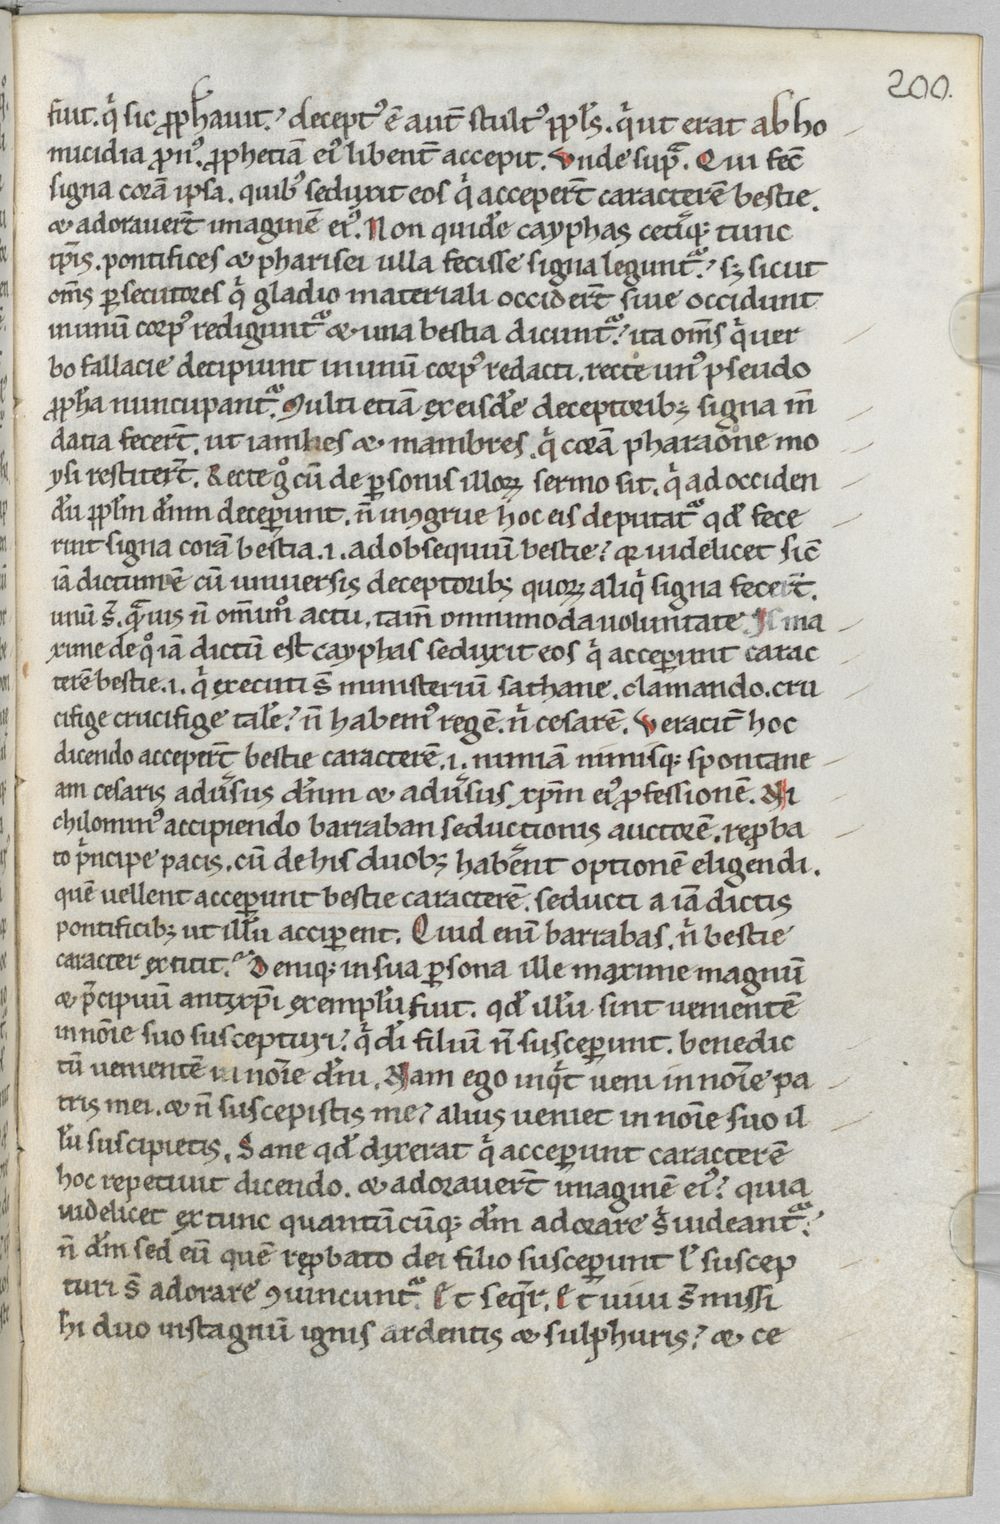 200.
fuit. q̇ sic ꝓph̄auit.ꝰ decept᷒ ē aut̄ stult᷒ ppl̄s. q̇ ut erat ab ho
micidia ꝓn᷒. ꝓphetiā ei᷒ libent̄ accepit. Vnde supᷓ. Qui fec̄
signa corā ipsa. quib᷒ seduxit eos q̇ acceper̄t caracterē bestie.
& adorauer̄t imaginē ei᷒. Non quidē cayphas ceteiq; tunc
tp̄is. pontifices & pharisei ulla fecisse signa leguntᷓ.ꝰ sꝫ sicut
om̄s ꝑsecutores q̇ gladio materiali occider̄t siue occidunt
in unū corp᷒ rediguntᷓ & una bestia dicuntᷓ.ꝰ ita om̄s q̇ uer
bo fallacie decipiunt in unū corp᷒ redacti. recte un᷒ pseudo
ꝓph̄a nuncupantᷓ. Multi etiā ex eisdē deceptoribꝫ signa m̄
datia fecer̄t. ut iamnes & mambres. q̇ corā pharaone mo
ysi restiter̄t. Recte gͦ cū de ꝑsonis illoꝝ sermo sit. q̇ ad occiden
dū ppl̄m dn̄m deceꝑunt. n̄ inꝯgrue hoc eis deputatᷓ qd̄ fece
runt signa corā bestia .i. ad obsequiū bestie? qꝛ uidelicet sic̄
iā dictum ē cū uniuersis deceptoribꝫ quoꝝ aliq̇ signa fecer̄t.
unū s̄. qᷓuis n̄ omniū actu, tam̄ omnimoda uoluntate. Is ma
xime de qͦ iā dictū est cayphas seduxit eos q̇ acceꝑunt carac
terē bestie .i. q̇ executi s̄ ministeriū sathane. clamando. cru
cifige crucifige talē? n̄ habem᷒ regē. n̍ cesarē. Veracit̄ hoc
dicendo acceper̄t bestie caracterē .i. nimiā nimisq; spontane
am cesaris adūsus dn̄m & adūsus xp̄m ei᷒ ꝓfessionē. Ni
chilomin᷒ accipiendo barraban seductionis auctorē, reꝓba
to pͥncipe pacis. cū de his duobꝫ haberent optionē eligendi.
quē uellent acceꝑunt bestie caracterē. seducti a iā dictis
pontificibꝫ ut illū acciꝑent. Quid enī barrabas. n̍ bestie
caracter extitit.ꝰ Deniq; in sua ꝑsona ille maxime magnū
& p̄cipuū antixp̄i exemplū fuit. qd̄ illū sint uenientē
in noīe suo suscepturi? q̇ dī filiū n̄ susceꝑunt. benedic
tū uenientē in noīe dn̄i. Nam ego inqͥt ueni in noīe pa
tris mei. & n̄ suscepistis me? alius ueniet in noīe suo il
lū suscipietis. Sane qd̄ dixerat q̇ acceꝑunt caracterē
hoc repetiuit dicendo. & adorauer̄t imaginē ei᷒? quia
uidelicet ex tunc quantūcūq; dm̄ adorare s̍ uideantᷓ.ꝰ
n̄ dm̄ sed eū quē reꝓbato dei filio susceꝑunt ł suscep
turi s̄ adorare ꝯuincuntᷓ. Et seqr̄. Et uiui s̄ missi
hi duo in stagnū ignis ardentis & sulphuris? & ce